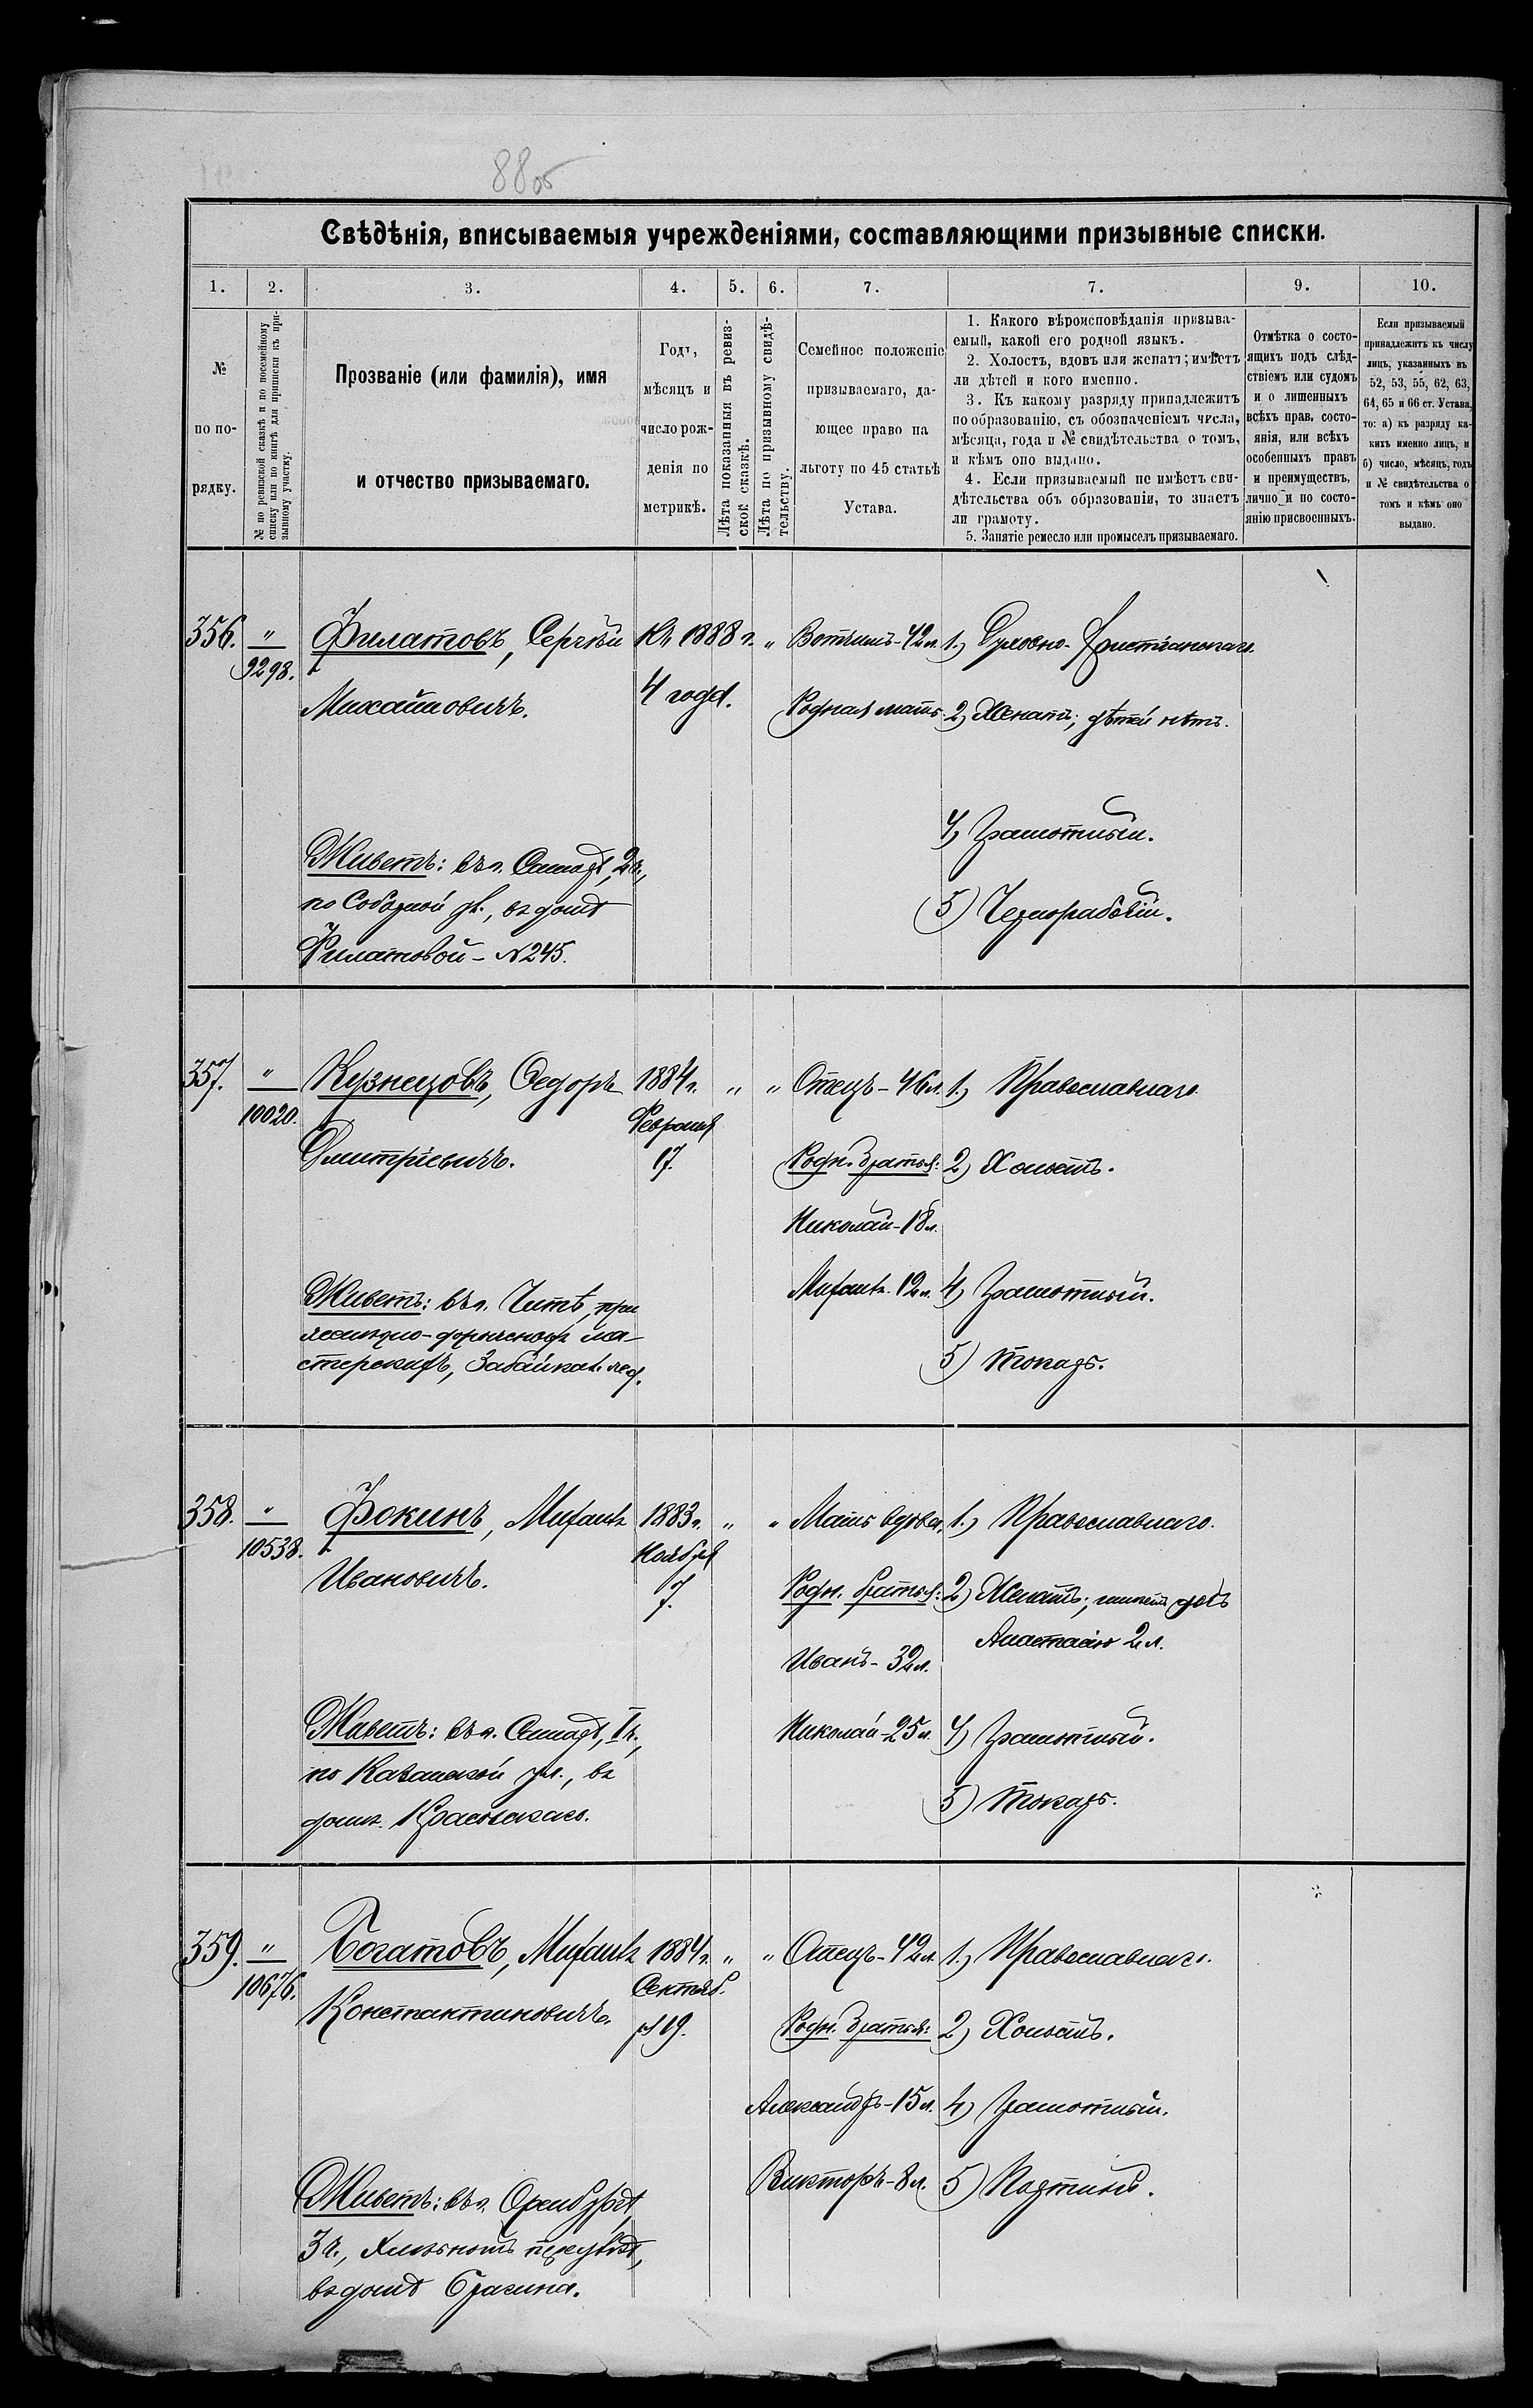 88об
Свѣдѣнія, вписываемыя учрежденіями, составляющими призывные списки.
1. 2. 3. 4. 5. 6. 7. 7. 9. 10.
№ по порядку.
№ по ревизской сказкѣ и по посемейному
списку или по книгѣ для приписки къ при-
зывному участку.
Прозваніе (или фамилія), имя
и отчество призываемаго.
Годъ,
мѣсяцъ и
число рож-
денія по
метрикѣ.
Лѣта показанныя въ ревиз-
ской сказкѣ.
Лѣта по призывному свидѣ-
тельству.
Семейное положеніе
призываемаго, да-
ющее право на
льготу по 45 статьѣ
Устава.
1. Какого вѣроисповѣданія призыва-
емый, какой его родной языкъ.
2. Холостъ, вдовъ или женатъ; имѣетъ
ли дѣтей и кого именно.
3. Къ какому разряду принадлежитъ
по образованію, съ обозначеніемъ числа,
мѣсяца, года и № свидѣтельства о томъ,
и кѣмъ оно выдано.
4. Если призываемый не имѣетъ сви-
дѣтельства объ образованіи, то знаетъ
ли грамоту.
5. Занятіе ремесло или промыселъ призываемаго.
Отмѣтка о состо-
ящихъ подъ слѣд-
ствіемъ или судомъ
и о лишенныхъ
всѣхъ прав. состо-
янія, или всѣхъ
особенныхъ правъ
и преимуществъ,
лично и по состо-
янію присвоенныхъ.
Если призываемый
принадлежитъ къ числу
лицъ, указанныхъ въ
52, 53, 55, 62, 63,
64, 65 и 66 ст. Устава,
то: а) къ разряду ка-
кихъ именно лицъ, и
б) число, мѣсяцъ, годъ
и № свидѣтельства о
томъ и кѣмъ оно
выдано.
356. " Филатовъ, Сергѣй Къ 1888 г. " Вотчимъ-42л. 1) Духовно-христіанскаго.
9298.
Михайловичъ. 4 года. Родная мать. 2) Женатъ; дѣтей нѣтъ.
4) Грамотный.
Живетъ: въ г. Самарѣ, 2ч.,
по Соборной ул., въ домѣ 5) Чернорабочій.
Филатовой - №245.
357. " Кузнецовъ, Федоръ 1884г. " " Отецъ-46л. 1) Православнаго.
10020. Февраля
Дмитріевичъ. 17. Родн. братья: 2) Холостъ.
Николай-18л.
Живетъ: въ г. Читѣ, при Михаилъ-12л. 4) Грамотный.
стерскихъ, Забайкал. жел. 5) Токарь.
358. " Фокинъ, Михаилъ 1883г. " " Мать вдова, 1) Православнаго.
10538. Ноября
Ивановичъ. 7. Родн. братья: 2) Женатъ; имѣетъ дочь
Анастасію 2 л.
Иванъ-32л.
Живетъ: въ г. Самарѣ, 1ч., Николай-25л. 4) Грамотный.
по Казанской ул., въ
домѣ 5) Токарь.
359. " Богатовъ, Михаилъ 1884г. " " Отецъ-42л. 1) Православнаго.
10676. Сентяб.
Константиновичъ. ря 19. Родн. братья: 2) Холостъ.
Александръ-15л. 4) Грамотный.
Викторъ-8л. 5) Портной.
Живетъ: въ г. Оренбургѣ,
3ч., переулкѣ,
въ домѣ